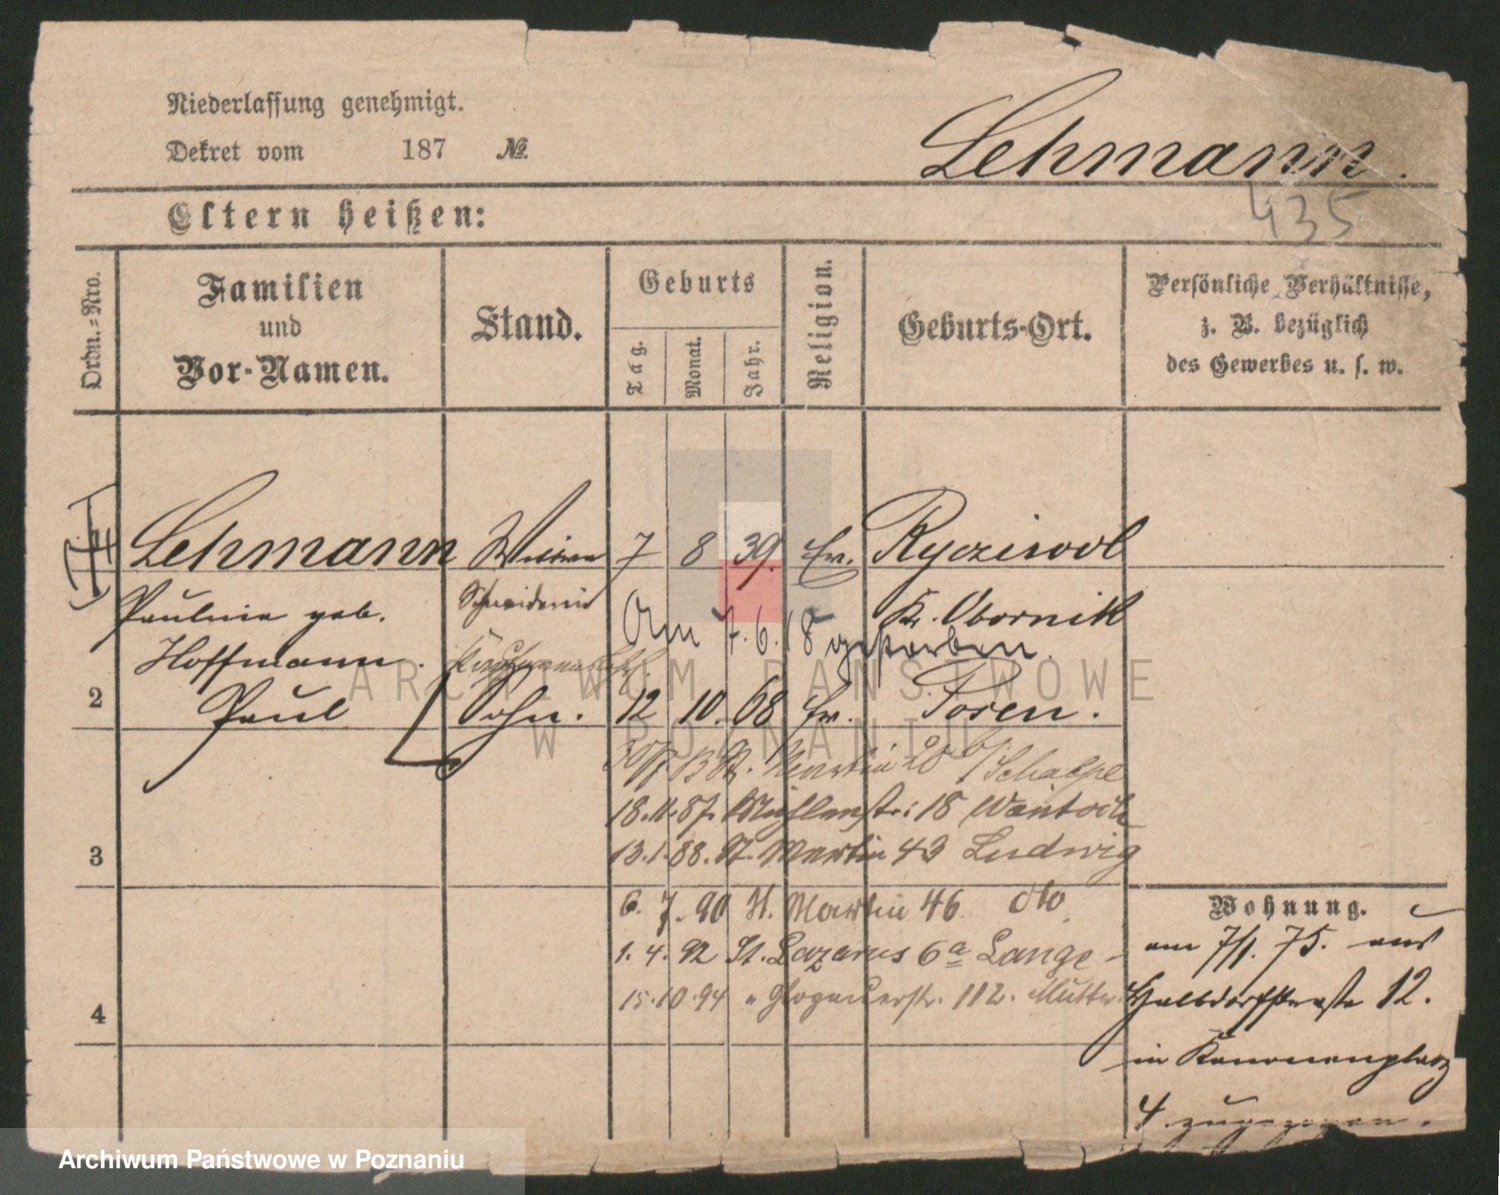 Niederlassung genehmigt.
Dekret vom 187 №
Lehmann.
435
Eltern heißen:
Ordn.-Nro.
Familien
und
Vor-Namen.
Stand.
Geburts
Tag.
Monat.
Jahr.
Religion.
Geburts-Ort.
Persönliche Verhältnisse,
z. B. bezüglich
des Gewerbes u. s. w.
Lehmann Wittwe 7 8 39. Ev. Rycziwol
Pauline geb. Schneiderin Kr. Obornik
Am 7.6.18 gestorben.
Hoffmann.
2 Paul Sohn. 12 10. 68 Ev. Posen.
St. Martin
18.11.87. Mühlenstr: 18
3
13.1.88. St. Martin 43 Ludwig
6. 7. 90 St. Martin 46 dto
Wohnung.
1. 4. 92 St. Lazarus 6a Lange
am 7/1. 75. aus
15.10.94 " Glogauerstr. 112. Mutter
Halbdorfstrasse 12.
4
in Kanonenplatz
4 zugezogen.
ARCHIWUM PAŃSTWOWE
W POZNANIU
Archiwum Państwowe w Poznaniu